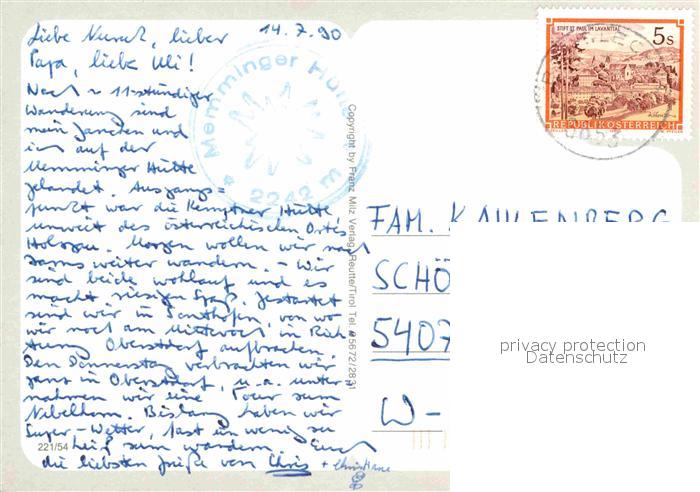 14.7.90
Liebe lieber
Papa, liebe Uli!
Nach ~ 11-stündiger
Wanderung sind
mein Janchen und
ich auf der
Memminger Hütte
gelandet. Ausgangs=
punkt war die Kemptner Hütte
unweit des österreichischen Ortes
Holzgau. Morgen wollen wir nach
Zams weiter wandern. – Wir
sind beide wohlauf und es
macht riesigen Spaß. Gestartet
sind wir in Sonthofen, von wo
wir noch am Mittwoch in Rich
tung Oberstdorf aufbrachen.
Den Donnerstag verbrachten wir
ganz in Oberstdorf, u.a. unter
nahmen wir eine Tour zum
Nebelhorn. Bislang haben wir
Super-Wetter, fast ein wenig zu
heiß zum wandern. Euch
die liebsten Grüße von Chris + Christiane
221/54
Memminger Hütte
2242 m
Copyright by Franz Milz Verlag Reutte/Tirol Tel. 05672/2831
STIFT ST. PAUL IM LAVANTTAL
5s
REPUBLIK ÖSTERREICH
6653
FAM. KAHLENBERG
SCHÖ
5407
W-
privacy protection
Datenschutz